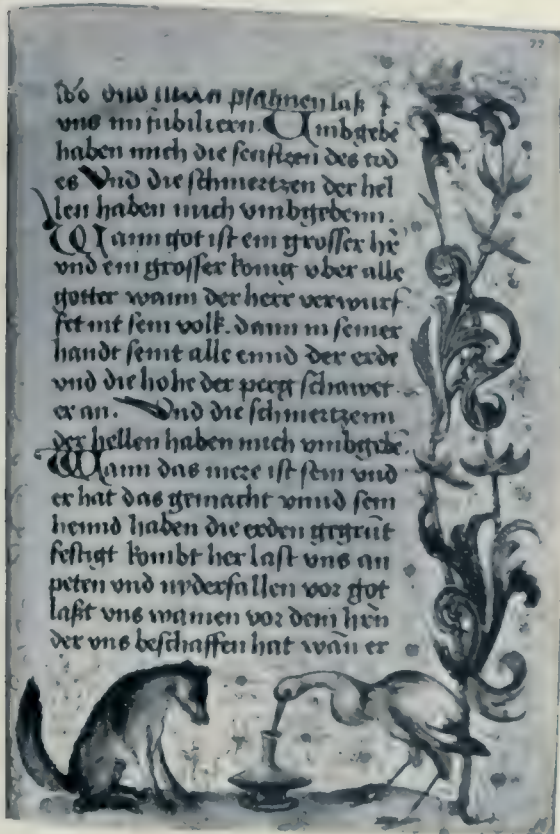 77
vnd in den psalmen laß
vns im jubiliern. Vmbgebē
haben mich die seufftzen des tod
es Vnd die schmertzen der hel
len haben mich vmbgebenn.
Wann got ist ein grosser hēr
vnd ein grosser konig vber alle
gotter wann der herr verwurf
fet nit sein volk. dann in seiner
handt seint alle ennd der erde
vnd die hohe der perg schawet
er an. Vnd die schmertzenn
der hellen haben mich vmbgebē
Wann das mere ist sein vnd
er hat das gemacht vnnd sein
hennd haben die erden gegrūt
festigt kombt her last vns an
peten vnd nyderfallen vor got
laßt vns wainen vor dem hrn
der vns beschaffen hat wan er